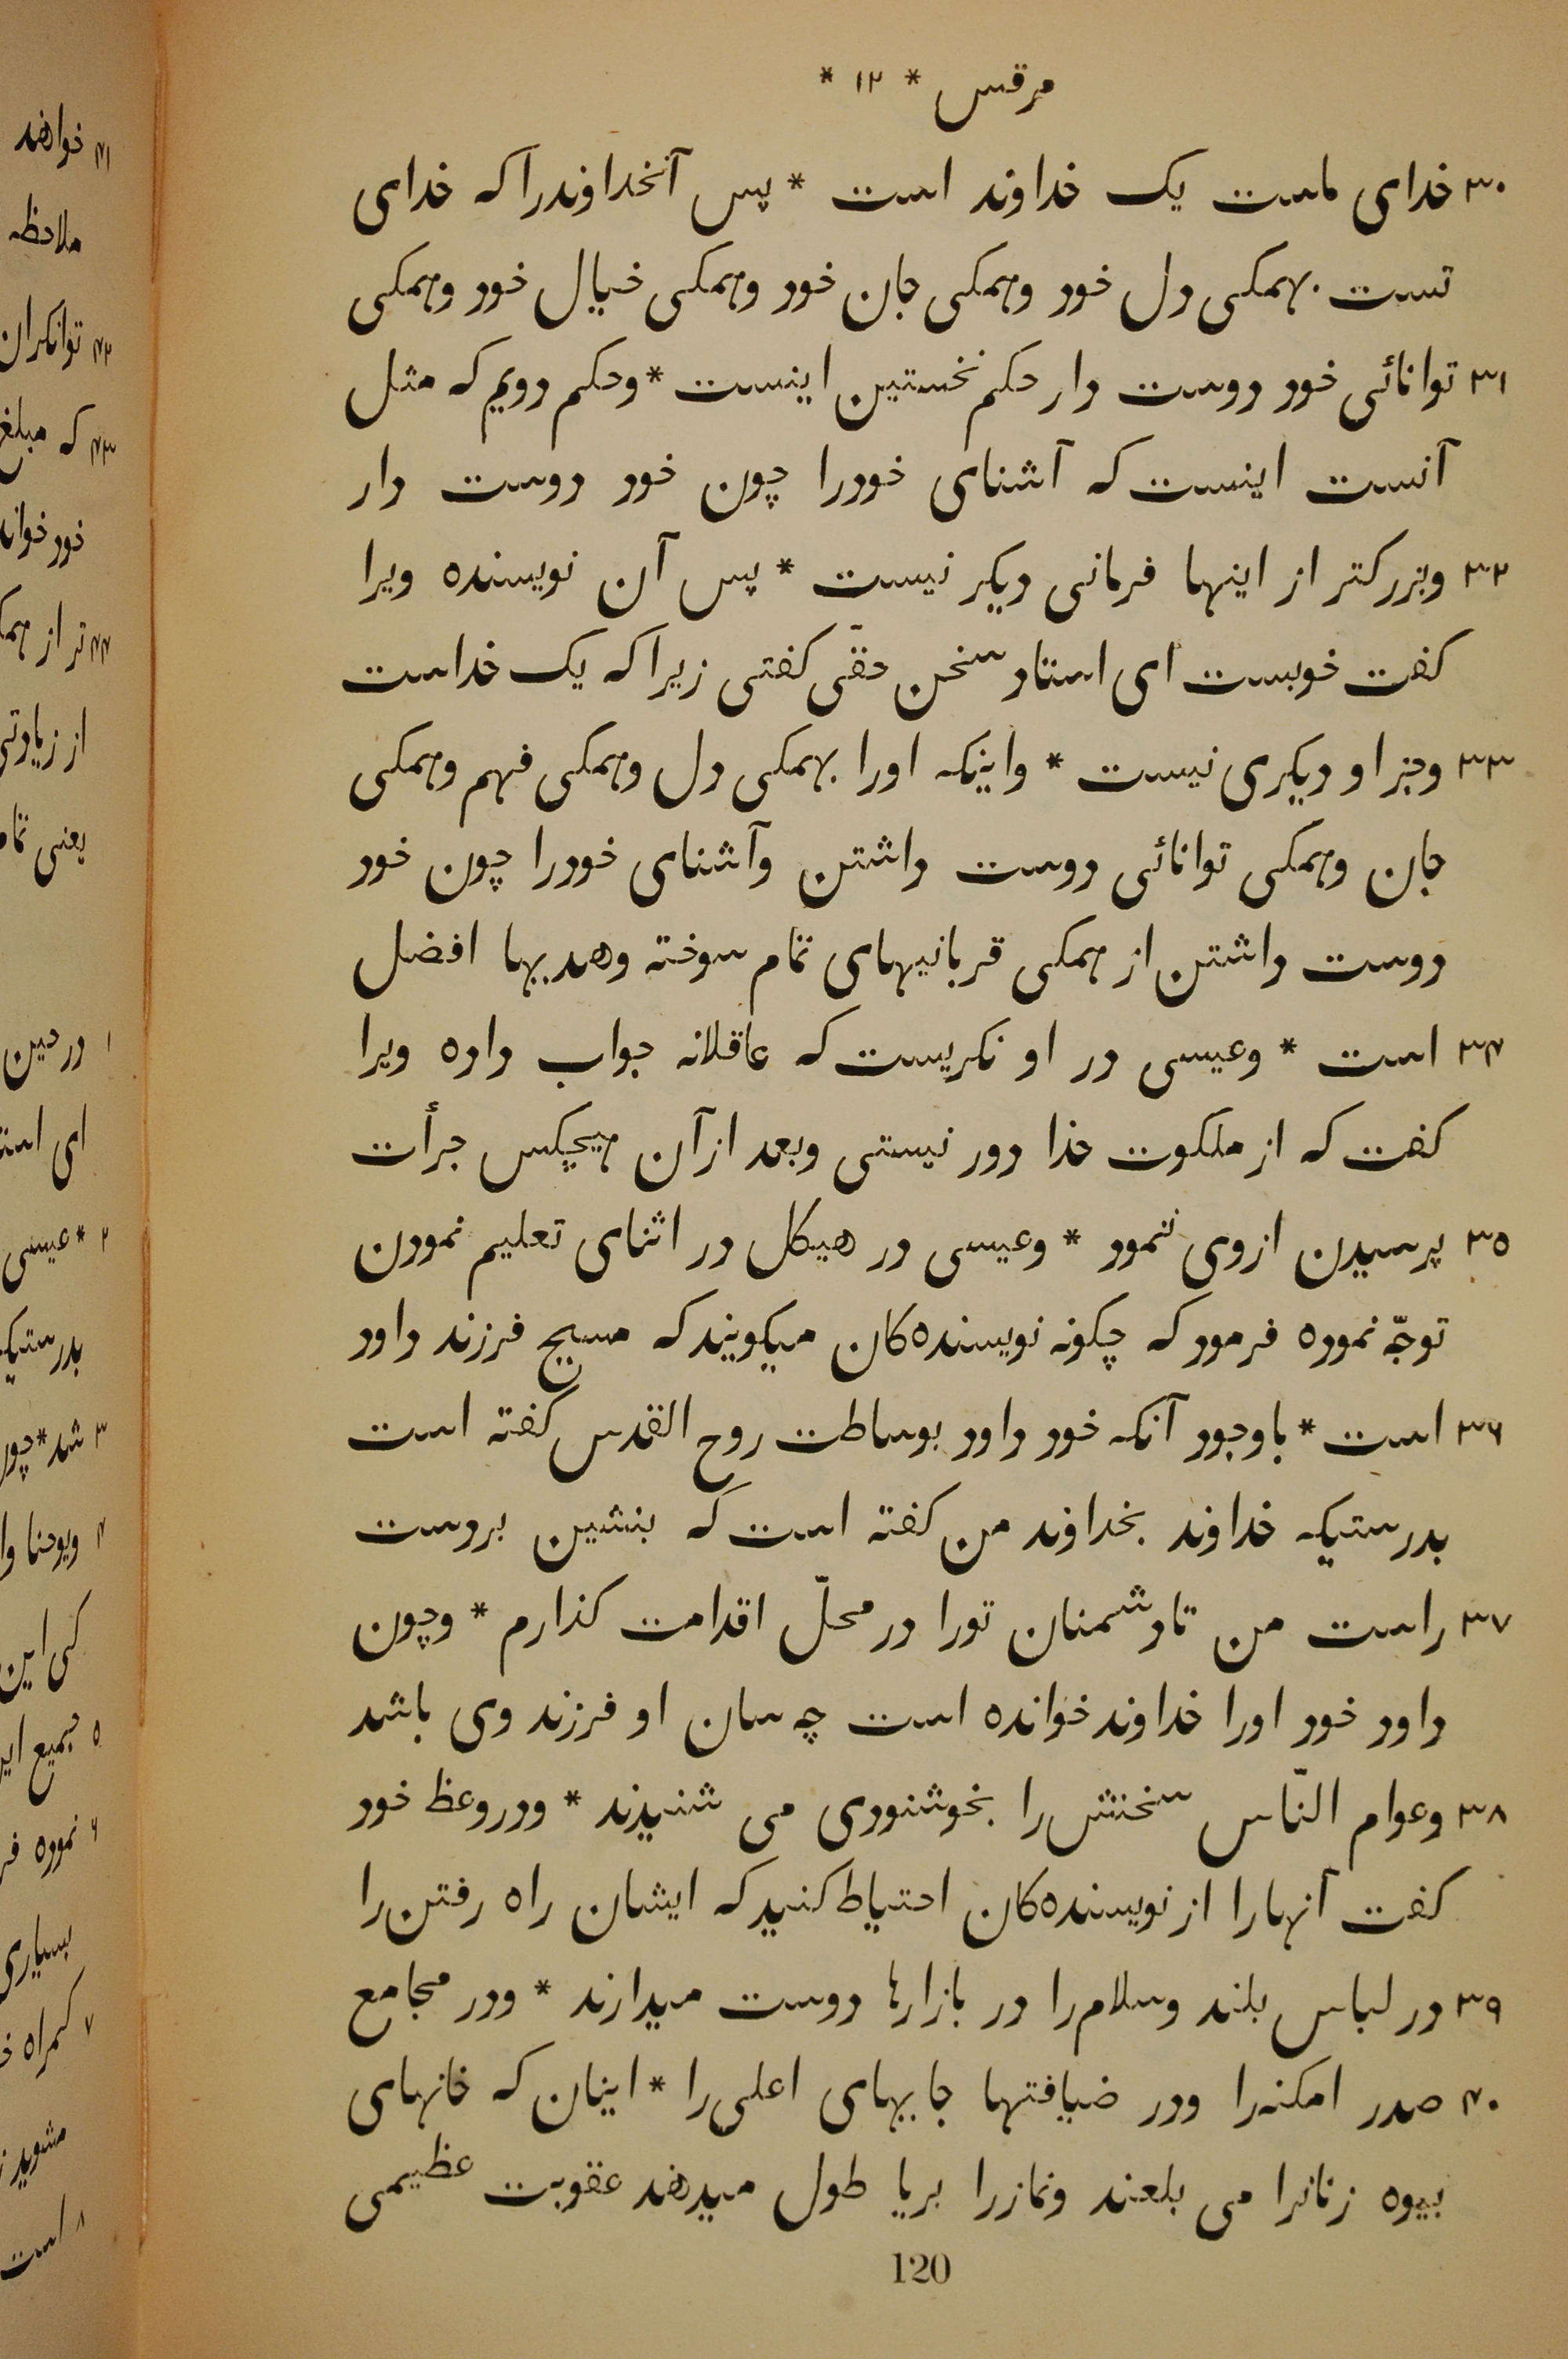 مرقس * ۱۲ *
۳۰ خدای ماست یک خداوند است * پس آنخداوندرا که خدای
تست بهمکی دل خود وهمکی جان خود وهمکی خیال خود وهمکی
۳۱ توانائی خود دوست دار حکم نخستین اینست * وحکم دویم که مثل
آنست اینست که آشنای خودرا چون خود دوست دار
۳۲ وبزرکتر از اینها فرمانی دیکر نیست * پس آن نویسنده ویرا
کفت خوبست ای استاد سخن حقّی کفتی زیرا که یک خداست
۳۳ وجز او دیکری نیست * واینکه اورا بهمکی دل وهمکی فهم وهمکی
جان وهمکی توانائی دوست داشتن وآشنای خودرا چون خود
دوست داشتن از همکی قربانیهای تمام سوخته وهدیها افضل
۳۴ است * وعیسی در او نکریست که عاقلانه جواب داده ویرا
کفت که از ملکوت خدا دور نیستی وبعد ازآن هیچکس جرأت
۳۵ پرسیدن ازوی ننمود * وعیسی در هیکل در اثنای تعلیم نمودن
توجّه نموده فرمود که چکونه نویسنده‌کان میکویند که مسیح فرزند داود
۳۶ است * باوجود آنکه خود داود بوساطت روح القدس کفته است
بدرستیکه خداوند بخداوند من کفته است که بنشین بردست
۳۷ راست من تادشمنان تورا در محلّ اقدامت کذارم * وچون
داود خود اورا خداوند خوانده است چه سان او فرزند وی باشد
۳۸ وعوام النّاس سخنش را بخوشنودی می شنیدند * ودروعظ خود
کفت آنهارا از نویسنده‌کان احتیاط کنید که ایشان راه رفتن را
۳۹ در لباس بلند وسلام را در بازارها دوست میدارند * ودر مجامع
۴۰ صدر امکنه‌را ودر ضیافتها جایهای اعلی را * اینان که خانهای
بیوه زنانرا می بلعند ونمازرا بریا طول میدهند عقوبت عظیمی
120
۴۱ خواهند
ملاحظه
۴۲ توانکران
۴۳ که مبلغ
خود
۴۴ تر از
از زیادتی
یعنی
۱ در حین
ای
۲ * عیسی
۳ شد *
۴ ویوحنا
کی این
۵ جمیع
۶ نموده
بسیاری
۷ کمراه
مشوید
۸ است